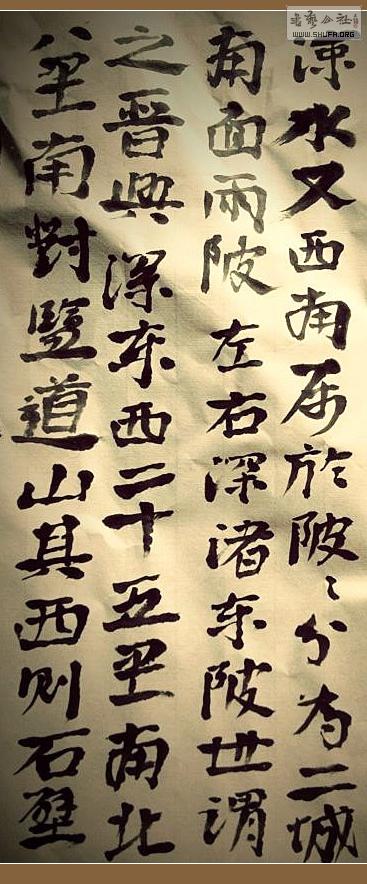 涑水又西南属於陂〻分为二城
南面兩陂左右澤渚东陂世謂
之晋興澤东西二十五里南北
八里南對鹽道山其西则石壁
书艺公社
WWW.SHUFA.ORG